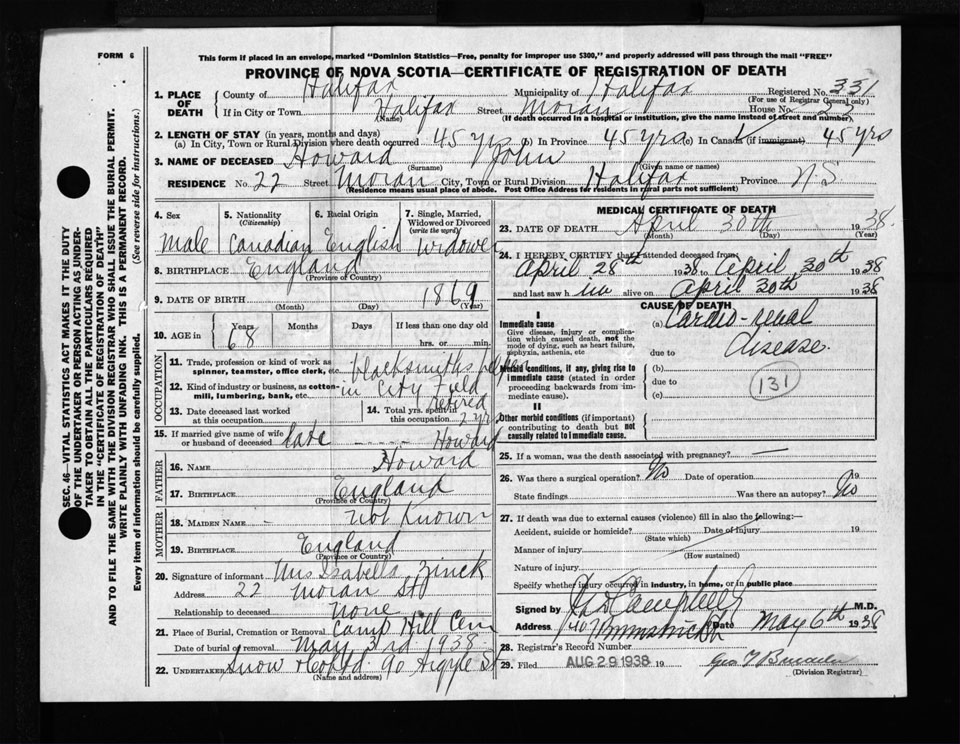 FORM 6
This form if placed in an envelope, marked "Dominion Statistics—Free, penalty for improper use $300," and properly addressed will pass through the mail "FREE"
PROVINCE OF NOVA SCOTIA—CERTIFICATE OF REGISTRATION OF DEATH
1. PLACE OF DEATH County of Halifax Municipality of Halifax Registered No. 331
(For use of Registrar General only)
If in City or Town Halifax Street Moran House No. 22
(Name) (If death occurred in a hospital or institution, give the name instead of street and number)
2. LENGTH OF STAY (in years, months and days)
(a) In City, Town or Rural Division where death occurred 45 yrs (b) In Province 45 yrs (c) In Canada (if immigrant) 45 yrs
3. NAME OF DECEASED Howard John
(Surname) (Given name or names)
RESIDENCE No. 22 Street Moran City, Town or Rural Division Halifax Province N.S.
(Residence means usual place of abode. Post Office Address for residents in rural parts not sufficient)
4. Sex Male
5. Nationality (Citizenship) Canadian
6. Racial Origin English
7. Single, Married, Widowed or Divorced (write the word) Widower
8. BIRTHPLACE England
(Province or Country)
9. DATE OF BIRTH 1869
(Month) (Day) (Year)
10. AGE in Years Months Days If less than one day old
68 hrs. or min.
OCCUPATION
11. Trade, profession or kind of work as spinner, teamster, office clerk, etc. blacksmiths helper
12. Kind of industry or business, as cotton-mill, lumbering, bank, etc. in City Field
13. Date deceased last worked at this occupation retired
14. Total yrs. spent in this occupation 2 yrs
15. If married give name of wife or husband of deceased late ---- Howard
FATHER
16. NAME Howard
17. BIRTHPLACE England
(Province or Country)
MOTHER
18. MAIDEN NAME - not Known
19. BIRTHPLACE England
(Province or Country)
20. Signature of informant Mrs Isabella Zinck
Address 22 Moran St
Relationship to deceased None
21. Place of Burial, Cremation or Removal Camp Hill Cem
Date of burial or removal May 3rd 1938
22. Undertaker Snow & Co Ltd. 90 Argyle St
(Name and address)
MEDICAL CERTIFICATE OF DEATH
23. DATE OF DEATH April 30th 1938
(Month) (Day) (Year)
24. I HEREBY CERTIFY that I attended deceased from:
April 28th 1938 to April 30th 1938
and last saw h im alive on April 30th 1938
CAUSE OF DEATH
I
Immediate cause (a) Cardio-renal disease
Give disease, injury or complication which caused death, not the mode of dying, such as heart failure, asphyxia, asthenia, etc
due to
Morbid conditions, if any, giving rise to immediate cause (stated in order proceeding backwards from immediate cause). (b)
due to 131
(c)
II
Other morbid conditions (if important) contributing to death but not causally related to immediate cause.
25. If a woman, was the death associated with pregnancy? —
26. Was there a surgical operation? No Date of operation 19
State findings Was there an autopsy? No
27. If death was due to external causes (violence) fill in also the following:—
Accident, suicide or homicide? Date of injury 19
(State which)
Manner of injury
(How sustained)
Nature of injury
Specify whether injury occurred in industry, in home, or in public place
Signed by Campbell M.D.
Address Date May 6th 1938
28. Registrar's Record Number
29. Filed AUG 29 1938 19
(Division Registrar)
SEC. 46—VITAL STATISTICS ACT MAKES IT THE DUTY
OF THE UNDERTAKER OR PERSON ACTING AS UNDER-
TAKER TO OBTAIN ALL THE PARTICULARS REQUIRED
IN THE "CERTIFICATE OF REGISTRATION OF DEATH"
AND TO FILE THE SAME WITH THE DIVISION REGISTRAR WHO SHALL ISSUE THE BURIAL PERMIT.
WRITE PLAINLY WITH UNFADING INK. THIS IS A PERMANENT RECORD.
Every item of information should be carefully supplied. (See reverse side for instructions.)